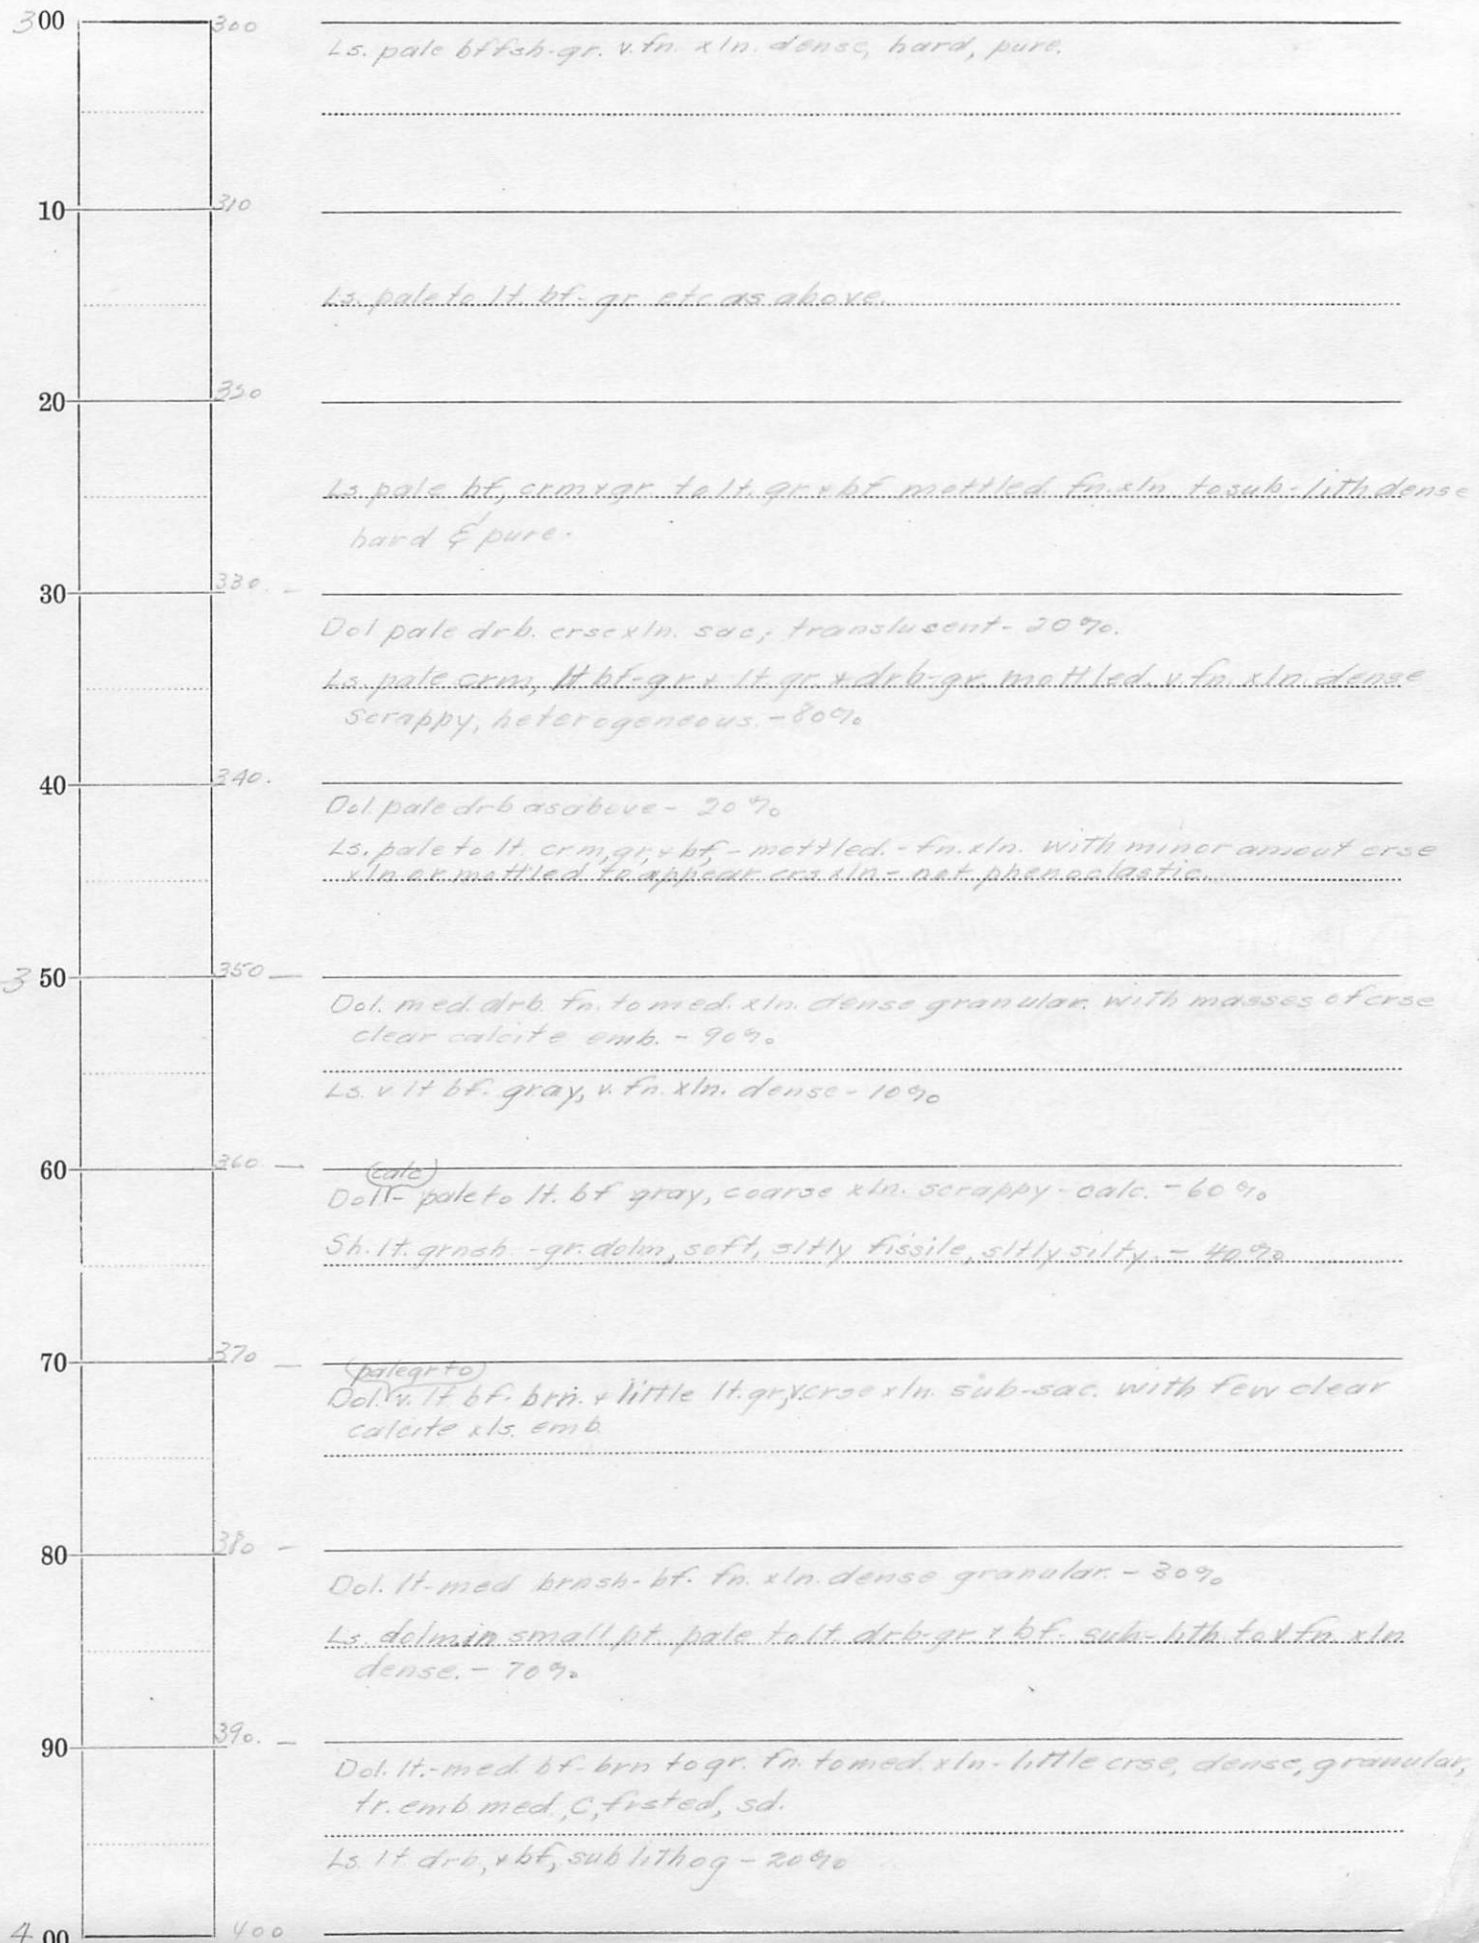 300 300
Ls. pale bffsh-gr. v. fn. xln. dense, hard, pure.
10 310
Ls. pale to lt. bf-gr. etc as above.
20 320
Ls. pale bf, crm & gr. to lt. gr & bf mottled. fn. xln. to sub-lith dense
hard & pure.
30 330. -
Dol pale drb. crse xln. sac, translusent - 20%.
Ls. pale crm, lt bf-gr & lt. gr. & drb-gr. mottled. v. fn. xln. dense
scrappy, heterogeneous. - 80%
40 340.
Dol. pale drb as above - 20%
Ls. pale to lt. crm, gr, & bf, - mottled. - fn. xln. with minor amout crse
xln or mottled to appear crs xln - not phenoclastic.
350 350 -
Dol. med. drb. fn. to med. xln. dense granular. with masses of crse
clear calcite emb. - 90%
Ls. v lt bf. gray, v. fn. xln. dense - 10%
60 360 -
(calc)
Dol - pale to lt. bf gray, coarse xln. scrappy - calc. - 60%
Sh. lt. grnsh - gr. dolm, soft, sltly fissile, sltly silty. - 40%
70 370 -
(pale gr to)
Dol. v. lt bf. brn. & little lt. gr, v. crse xln. sub-sac. with few clear
calcite xls. emb.
80 380 -
Dol. lt-med brnsh-bf. fn. xln. dense granular. - 30%
Ls. dolm in small pt. pale to lt. drb-gr. & bf. sub-lith to v fn. xln
dense. - 70%
90 390. -
Dol. lt.-med. bf-brn to gr. fn. to med. xln - little crse, dense, granular,
tr. emb med, C, frsted, sd.
Ls. lt drb, & bf, sub lithog - 20%
400 400